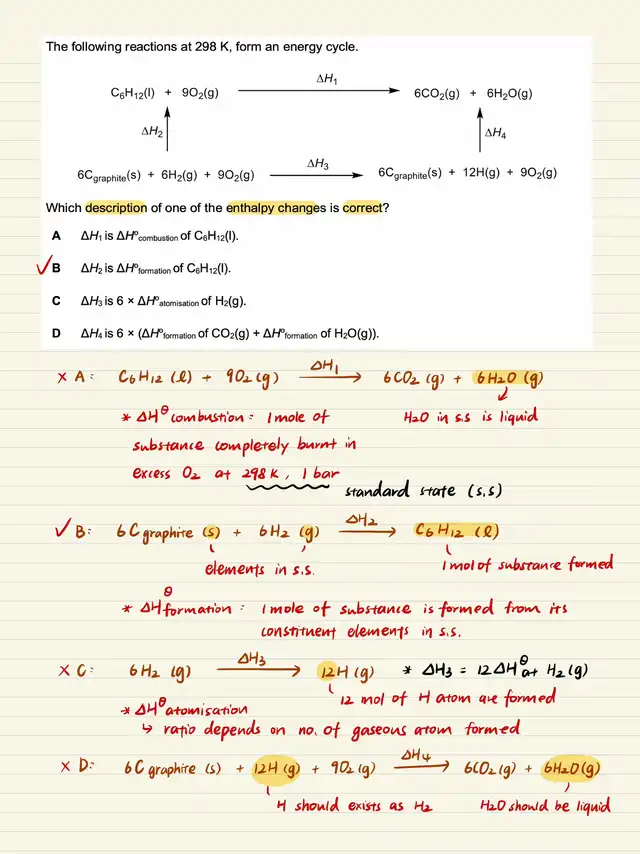 The following reactions at 298 K, form an energy cycle.
ΔH₁
C₆H₁₂(l) + 9O₂(g)
6CO₂(g) + 6H₂O(g)
ΔH₂
ΔH₄
ΔH₃
6Cgraphite(s) + 6H₂(g) + 9O₂(g)
6Cgraphite(s) + 12H(g) + 9O₂(g)
Which description of one of the enthalpy changes is correct?
A ΔH₁ is ΔHᶱcombustion of C₆H₁₂(l).
✓ B ΔH₂ is ΔHᶱformation of C₆H₁₂(l).
C ΔH₃ is 6 × ΔHᶱatomisation of H₂(g).
D ΔH₄ is 6 × (ΔHᶱformation of CO₂(g) + ΔHᶱformation of H₂O(g)).
× A: C₆H₁₂ (l) + 9O₂ (g) ΔH₁ → 6CO₂ (g) + 6H₂O (g)
* ΔHᶱ combustion : 1 mole of
H₂O in s.s is liquid
substance completely burnt in
excess O₂ at 298 K, 1 bar
standard state (s.s)
✓ B: 6C graphite (s) + 6H₂ (g) ΔH₂ → C₆H₁₂ (l)
elements in s.s.
1 mol of substance formed
* ΔHᶱ formation : 1 mole of substance is formed from its
constituent elements in s.s.
× C: 6H₂ (g) ΔH₃ → 12H (g) * ΔH₃ = 12ΔHᶱat H₂ (g)
12 mol of H atom are formed
* ΔHᶱ atomisation
↳ ratio depends on no. of gaseous atom formed
× D: 6C graphite (s) + 12H (g) + 9O₂ (g) ΔH₄ → 6CO₂ (g) + 6H₂O (g)
H should exists as H₂
H₂O should be liquid